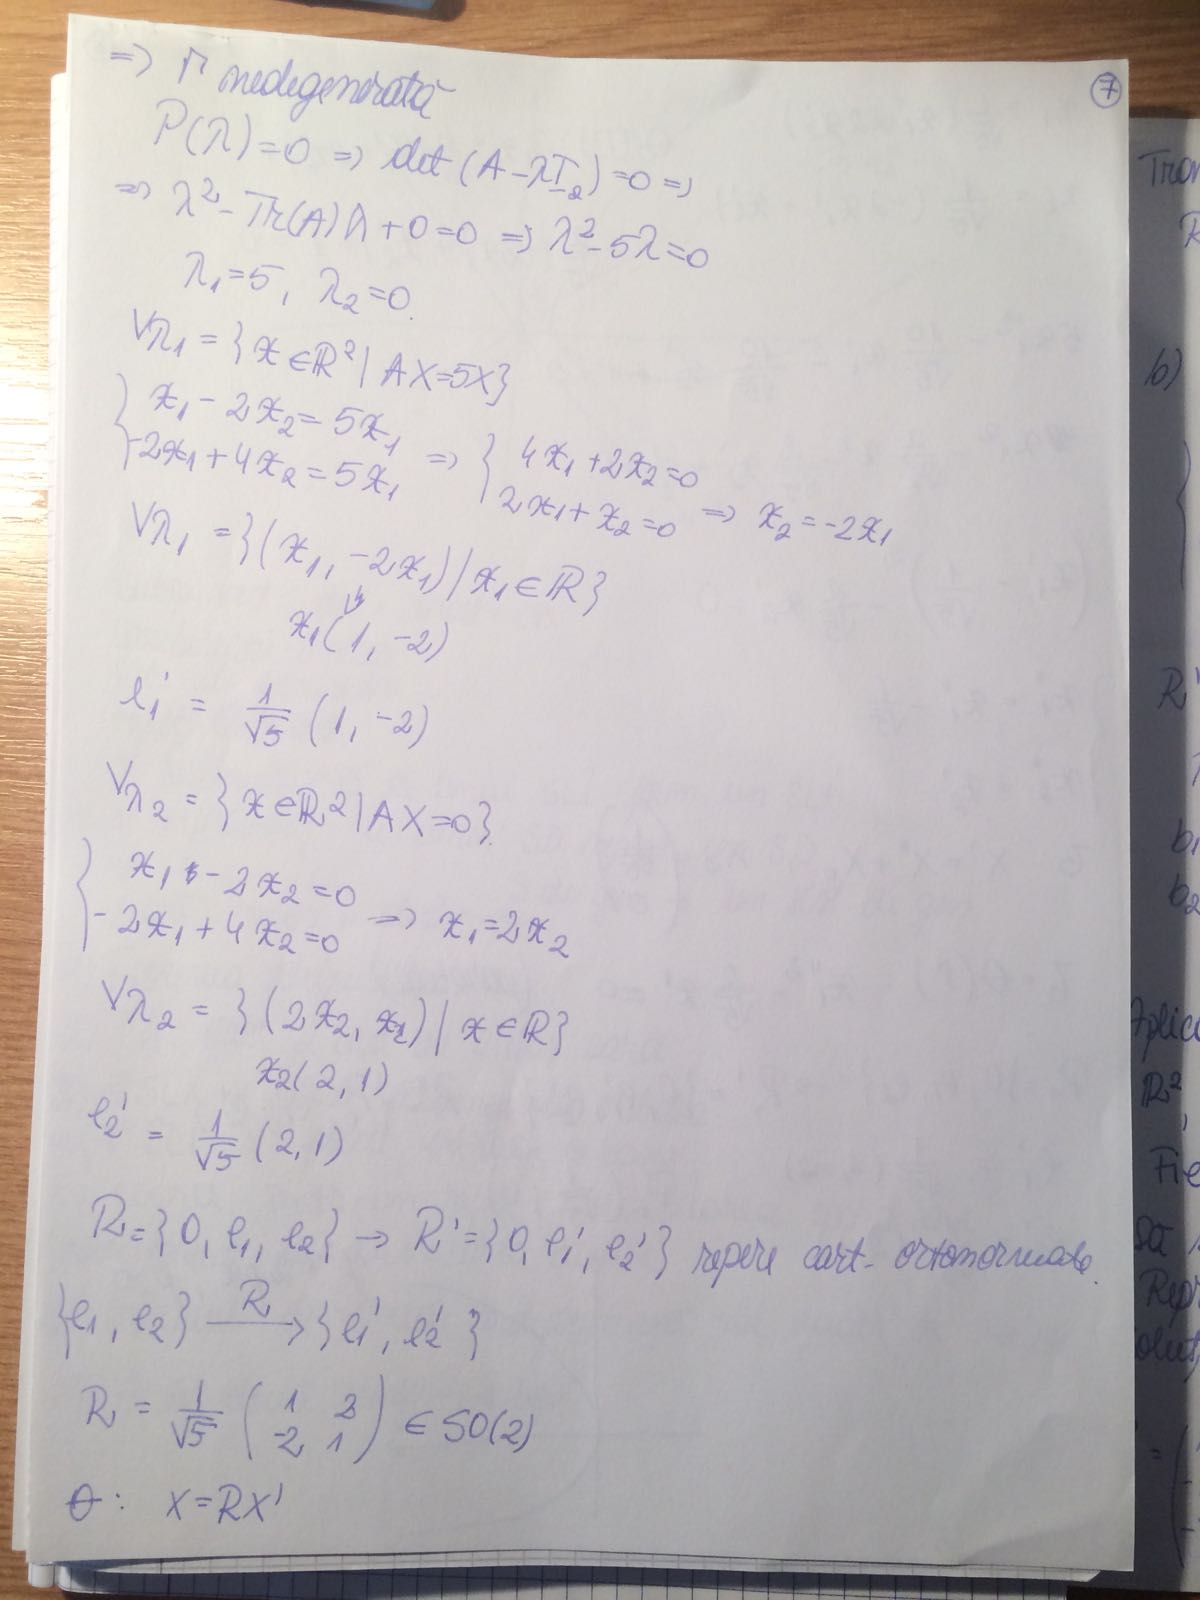 ⑦
=> Γ nedegenerată
P(λ)=0 => det(A-λI₂)=0 =>
=> λ² - Tr(A)λ + 0=0 => λ²-5λ=0
λ₁=5, λ₂=0.
Vλ₁ = {x∈ℝ² | AX=5X}
{ x₁-2x₂=5x₁
-2x₁+4x₂=5x₁ => { 4x₁+2x₂=0
2x₁+x₂=0 => x₂=-2x₁
Vλ₁ = {(x₁, -2x₁) | x₁∈ℝ}
x₁(1, -2)
e₁' = 1/√5 (1, -2)
Vλ₂ = {x∈ℝ² | AX=0}.
{ x₁ - 2x₂=0
-2x₁+4x₂=0 => x₁=2x₂
Vλ₂ = {(2x₂, x₂) | x∈ℝ}
x₂(2, 1)
e₂' = 1/√5 (2, 1)
R={0, e₁, e₂} → R'={0, e₁', e₂'} repere cart. ortonormate.
{e₁, e₂} —R→ {e₁', e₂'}
R = 1/√5 ( 1 2
-2 1 ) ∈ SO(2)
θ: X=RX'
Tran
R
b)
R'
b₁
b₂
Aplica
ℝ²,
Fie
Să
Repr